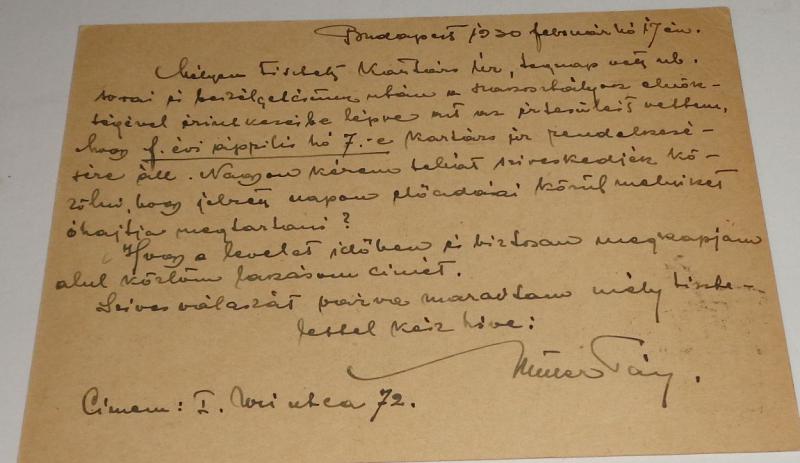 Budapest 1930 februárhó 17-én.
Mélyen tisztelt Kartárs Úr, tegnap vett ub.
sorai és beszélgetésünk után a szakosztályosz elnök-
ségével érintkezésbe lépve azt az értesülést vettem,
hogy f. évi ápprilis hó 7.-e Kartárs úr rendelkezé-
sére áll. Nagyon kérem tehát sziveskedjék kö-
zölni, hogy jelzett napon előadásai közül melyiket
óhajtja megtartani?
Hogy a levelet időben és biztosan megkapjam
alul közlöm lakásom címét.
Szives válaszát várva maradtam mély tiszte-
lettel kész híve:
Müller Pál.
Címem: I. Uri utca 72.